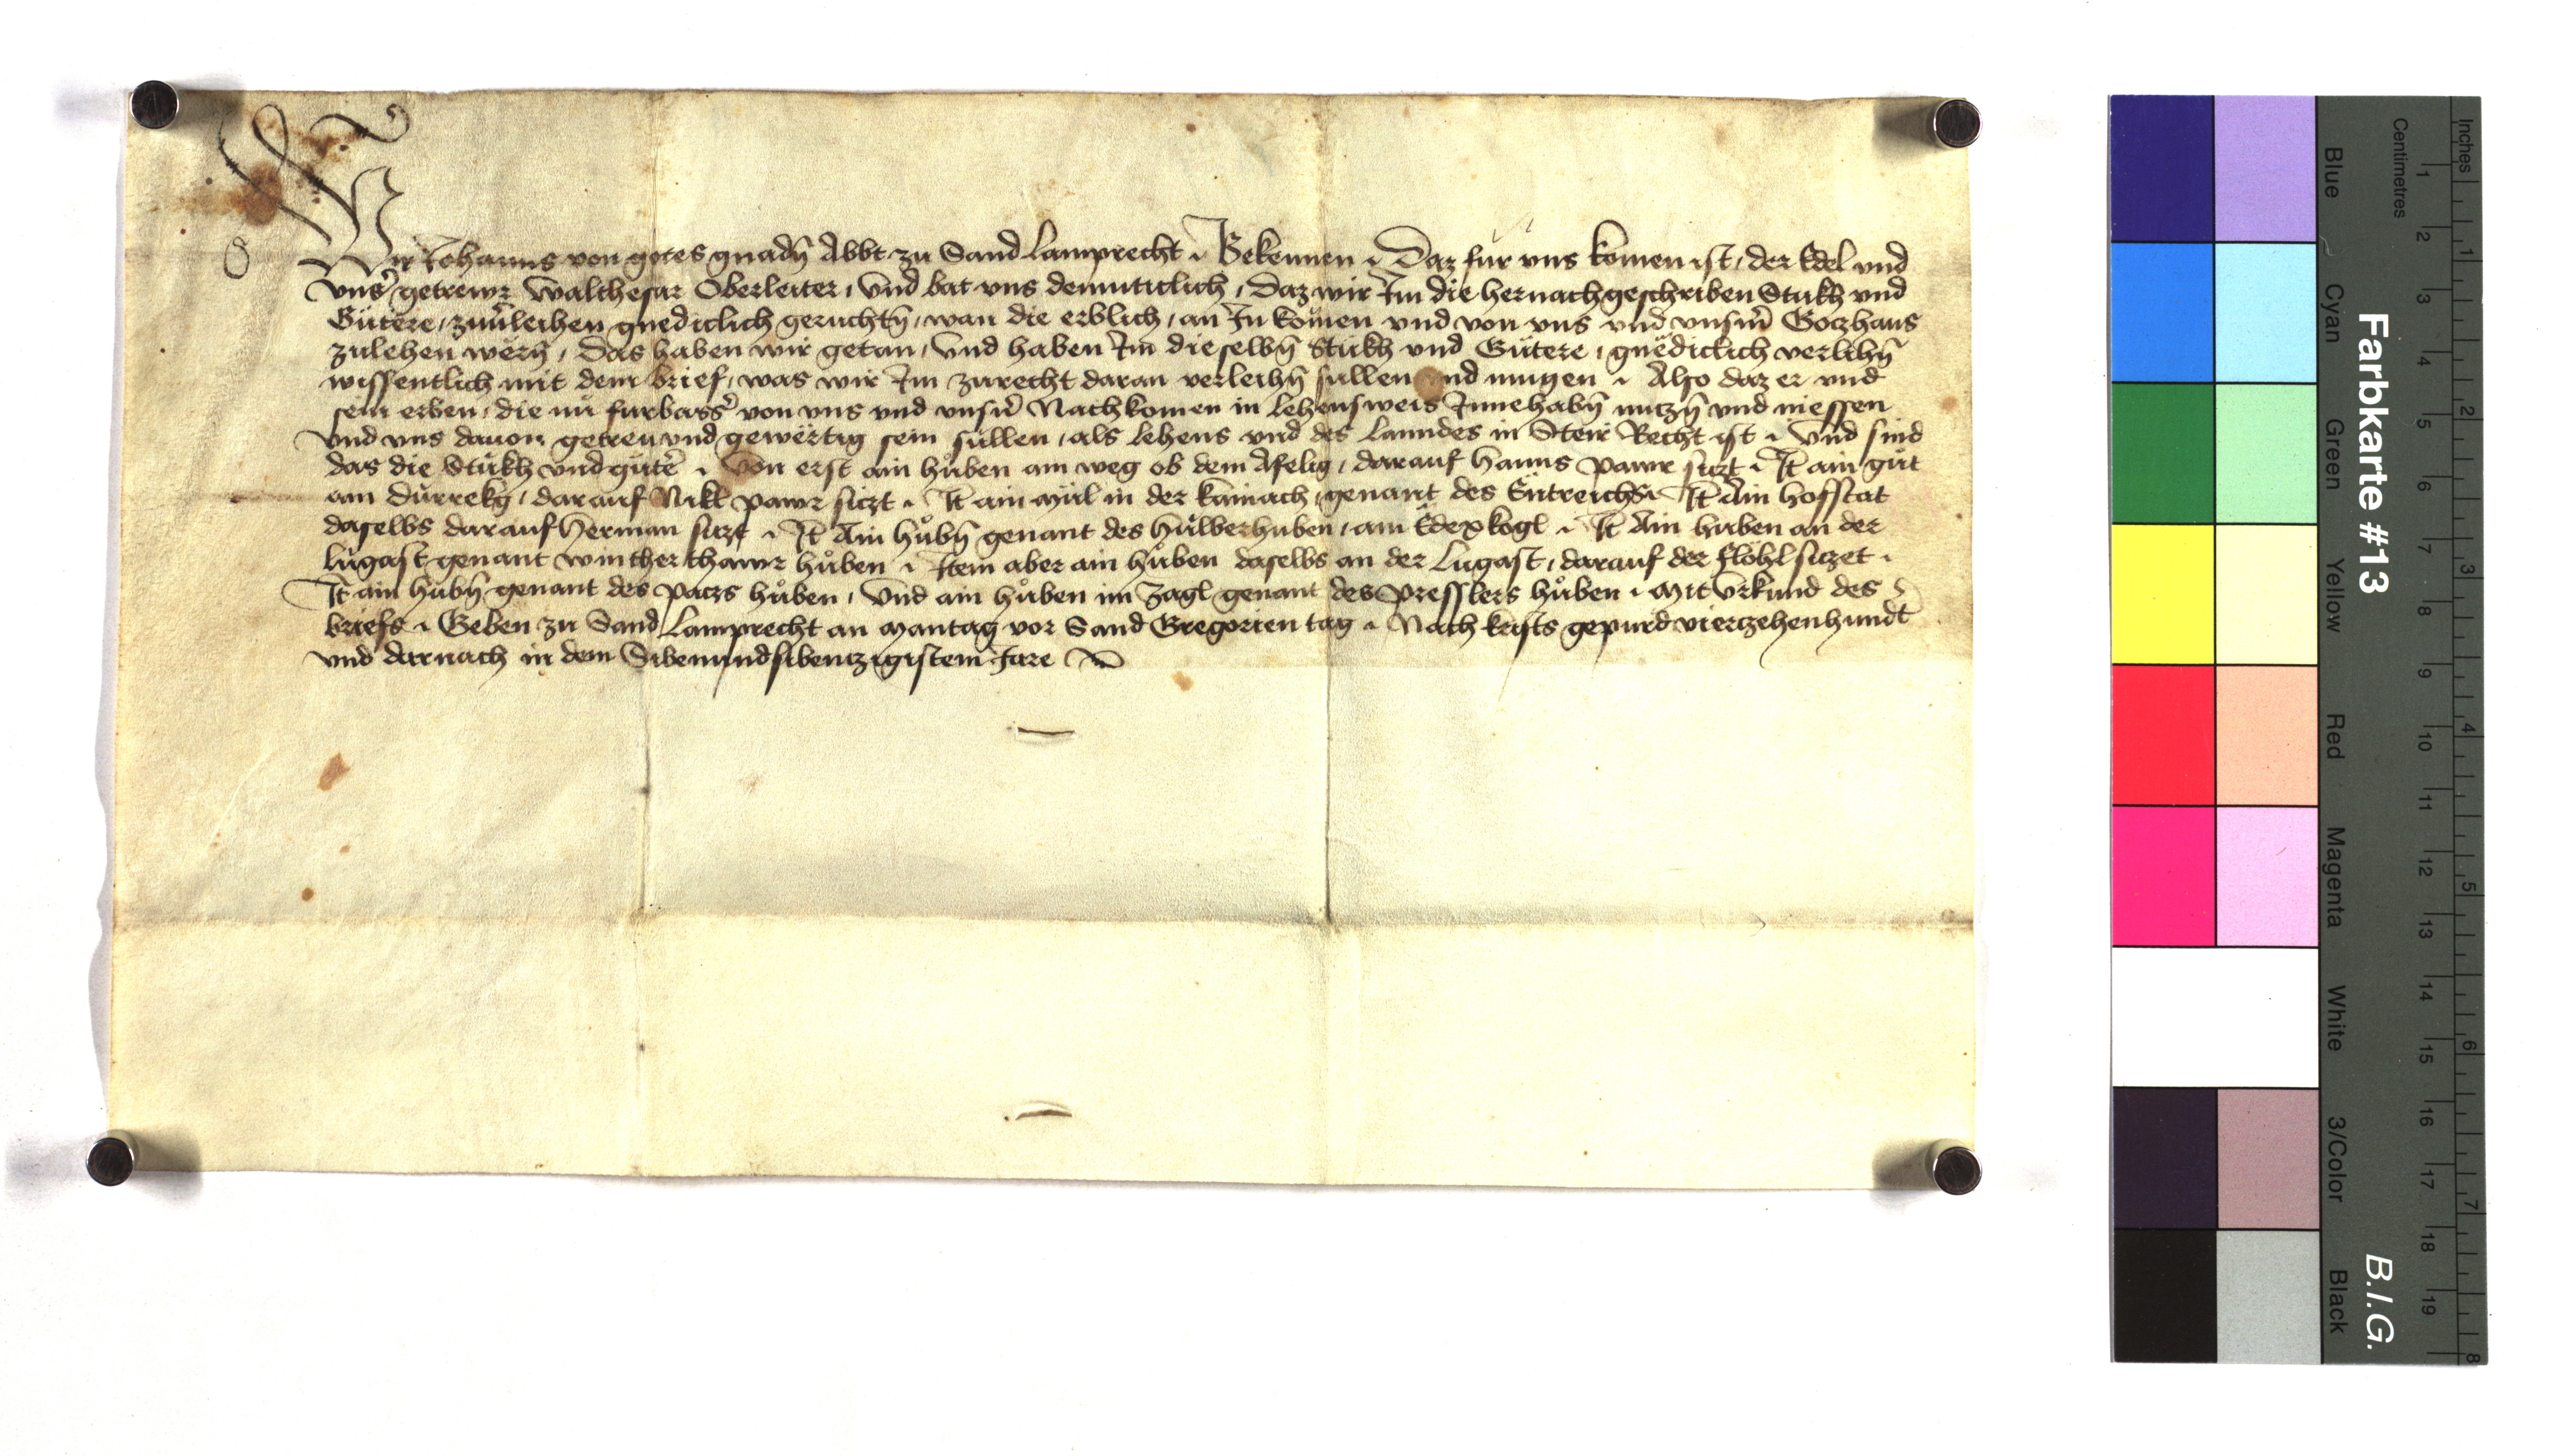 Wir Johanns von gotes gnadn̄ Abbt zu Sand Lamprecht Bekennen Daz fur vns komen ist, der Edel vnd
vnsˀ getrewr Walthesar Oberleiter, Vnd bat vns demuticlich, Daz wir Im die hernachgeschriben Stukh vnd
Gütere, zuuˀleihen gnediclich geruchtn̄, wan die erblich, an In komen vnd von vns vnd vnserm Gotzhaus
zulehen wërn̄, Das haben wir getan, Vnd haben Im dieselbn̄ Stükh vnd Gütere, gnëdiclich verlihn̄
wissentlich mit dem brief, was wir Im zurecht daran verleihn̄ sullen vnd mugen Also daz er vnd
sein erben, die nů furbassˀ von vns vnd vnsˀn Nachkomen in lehensweis Innehabn̄ nutzn̄ vnd niessen
Vnd vns dauon getreu vnd gewërtig sein süllen, als lehens vnd des lanndes in Steir Recht ist Vnd sind
das die Stükh vnd gütˀe Von erst ain hůben am weg ob dem Afelig, darauf Hanns pawr siczt It̄ ain gůt
am dürrekg, darauf Nikl pawr siczt It̄ ain Mül in der Kainach, genant des It̄ Ain hofstat
daselbs darauf Herman siczt It̄ Ain hůbn̄ genant des am kogl It̄ Ain huben an der
Lůgast genant hůben Item aber ain hůben daselbs an der Lugast, darauf der flöhl siczet
It̄ ain hubn̄ genant des paczs hůben, Vnd ain hůben im Zagl genant des Presslers hůben Mit Vrkund des
briefs Geben zu Sand Lamprecht an Mantag vor Sand Gregorien tag Nach krists gepurd vierczehenhundt
vnd darnach in dem Sibenundsibentzigistem Jare
Farbkarte #13
B.I.G.
Inches
Centimetres
1 2 3 4 5 6 7 8
1 2 3 4 5 6 7 8 9 10 11 12 13 14 15 16 17 18 19
Blue
Cyan
Green
Yellow
Red
Magenta
White
3/Color
Black